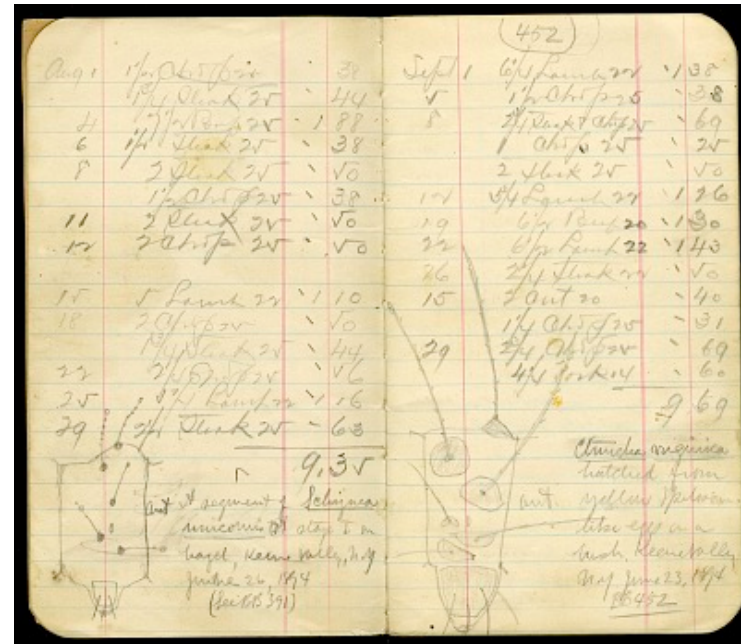 Aug 1 1½ Chop 25 38
1¾ Steak 25 44
4 7½ Beef 25 1 88
6 1½ Steak 25 38
8 2 Steak 25 50
1½ Chop 25 38
11 2 Steak 25 50
12 2 Chop 25 50
15 5 Lamb 22 1 10
18 2 Chop 25 50
1¾ Steak 25 44
22 2¼ Chop 25 56
25 Lamb 22 1 16
29 2½ Steak 25 63
9,35
A segment of Schizura
unicornis stage I on
hazel, Keene Valley, N.Y.
26, 1894
(See BB 391)
452
Sept 1 6¼ Lamb 22 1 38
5 1½ Chop 25 38
8 2¾ Steak & Chop 25 69
1 Chop 25 25
2 Steak 25 50
12 5¾ Lamb 22 1 26
19 6½ Beef 20 1 30
22 6½ Lamb 22 1 43
26 2¼ Steak 22 50
15 2 20 40
1¼ Chop 25 31
29 2¾ Chop 25 69
4¼ Pork 14 60
9 69
Ctenucha virginica
hatched from
yellow
like eggs on a
bush. Keene Valley
N.Y. June 23, 1894
BB 452